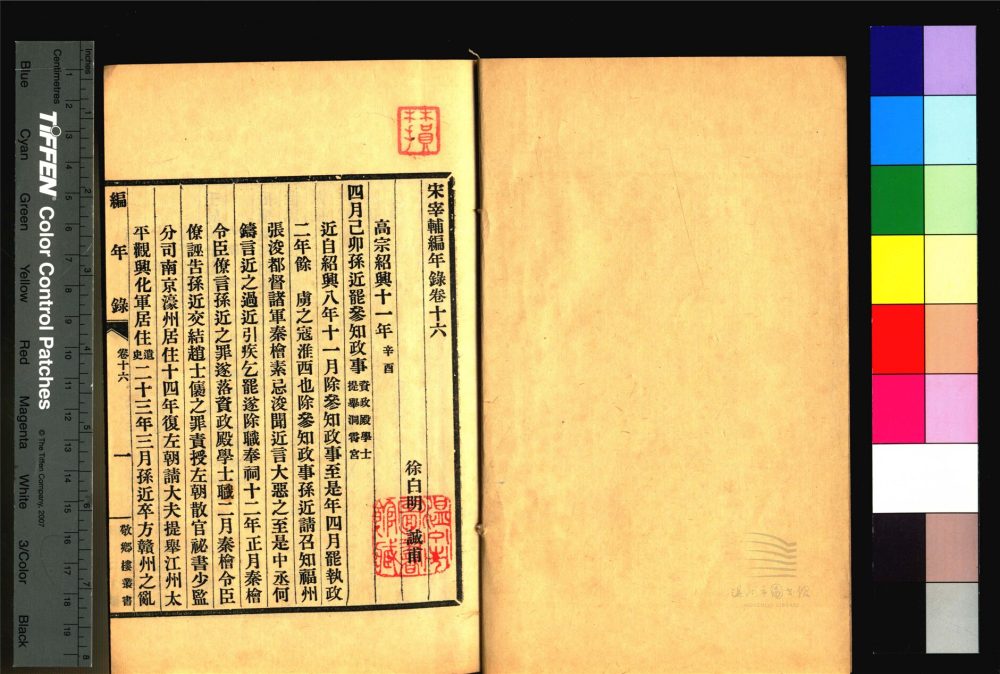 宋宰輔編年錄卷十六
徐自明 誠甫
高宗紹興十一年辛酉
四月己卯孫近罷參知政事資政殿學士提舉洞霄宮
近自紹興八年十一月除參知政事至是年四月罷執政
二年餘 虜之寇淮西也除參知政事孫近請召知福州
張浚都督諸軍秦檜素忌浚聞近言大惡之至是中丞何
鑄言近之過近引疾乞罷遂除職奉祠十二年正月秦檜
令臣僚言孫近之罪遂落資政殿學士職二月秦檜令臣
僚誣告孫近交結趙士㒟之罪責授左朝散官祕書少監
分司南京濠州居住十四年復左朝請大夫提舉江州太
平觀興化軍居住遺史二十三年三月孫近卒方贛州之亂
編年錄 卷十六 一 敬鄉樓叢書
Inches
Centimetres
TIFFEN Color Control Patches
© The Tiffen Company, 2007
Blue Cyan Green Yellow Red Magenta White 3/Color Black
1 2 3 4 5 6 7 8 9 10 11 12 13 14 15 16 17 18 19
1 2 3 4 5 6 7 8